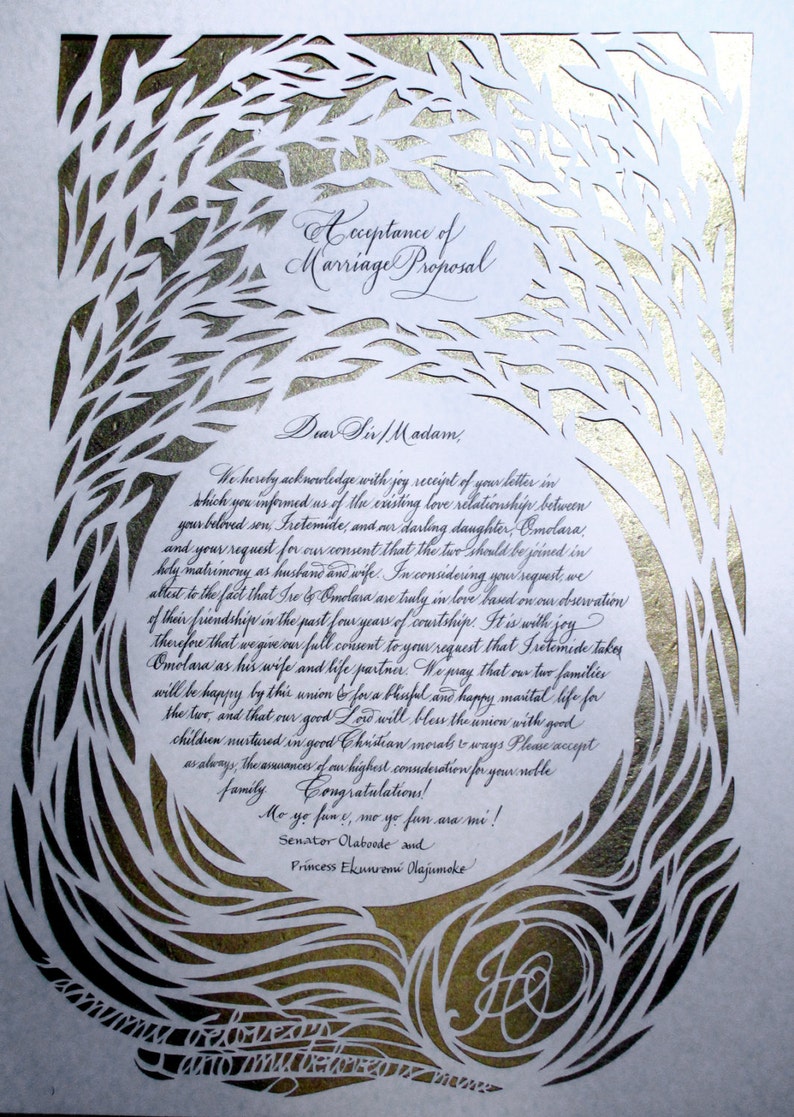 Acceptance of
Marriage Proposal
Dear Sir/Madam,
We hereby acknowledge with joy receipt of your letter in
which you informed us of the existing love relationship between
your beloved son, Iretemide, and our darling daughter, Omolara,
and your request for our consent that the two should be joined in
holy matrimony as husband and wife. In considering your request, we
attest to the fact that Ire & Omolara are truly in love based on our observation
of their friendship in the past four years of courtship. It is with joy
therefore that we give our full consent to your request that Iretemide takes
Omolara as his wife and life partner. We pray that our two families
will be happy by this union & for a blissful and happy marital life for
the two, and that our good Lord will bless the union with good
children nurtured in good Christian morals & ways Please accept
as always, the assurances of our highest consideration for your noble
family. Congratulations!
Mo yo fun e, mo yo fun ara mi!
Senator Olaboode and
Princess Ekunremi Olajumoke
IO
I am my beloved's
and my beloved is mine